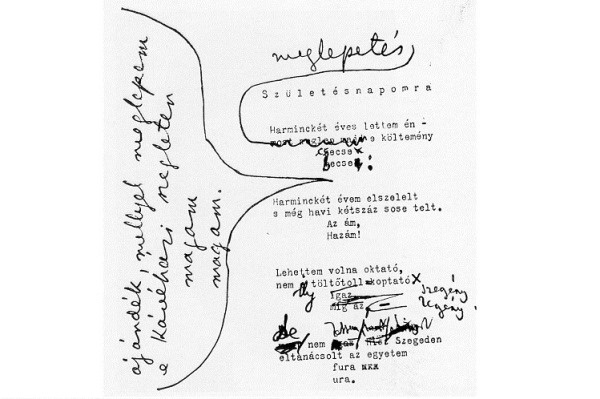 meglepetés
Születésnapomra
Harminckét éves lettem én -
e költemény
csecse
becse:
ajándék, mellyel meglepem
e kávéházi szegleten
magam
magam.
Harminckét évem elszelelt
s még havi kétszáz sose telt.
Az ám,
Hazám!
Lehettem volna oktató,
nem ily töltőtoll koptató
Igaz
míg az
szegény
legény.
De nem Szegeden
eltanácsolt az egyetem
fura
ura.